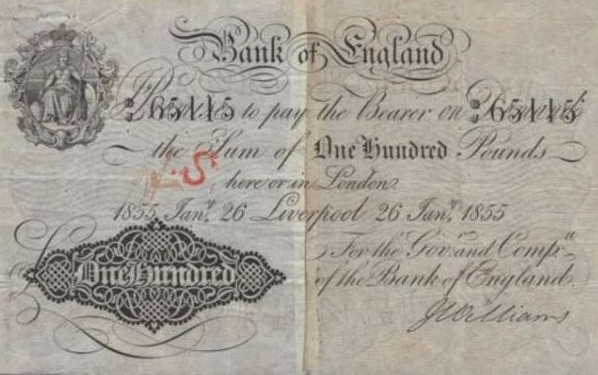 Bank of England
Promise to pay the Bearer on Demand
65115 65115
the Sum of One Hundred Pounds
here or in London
1855 Janʸ. 26 Liverpool 26 Janʸ. 1855
For the Govʳ. and Compᵃ.
of the Bank of England.
One Hundred
J Williams